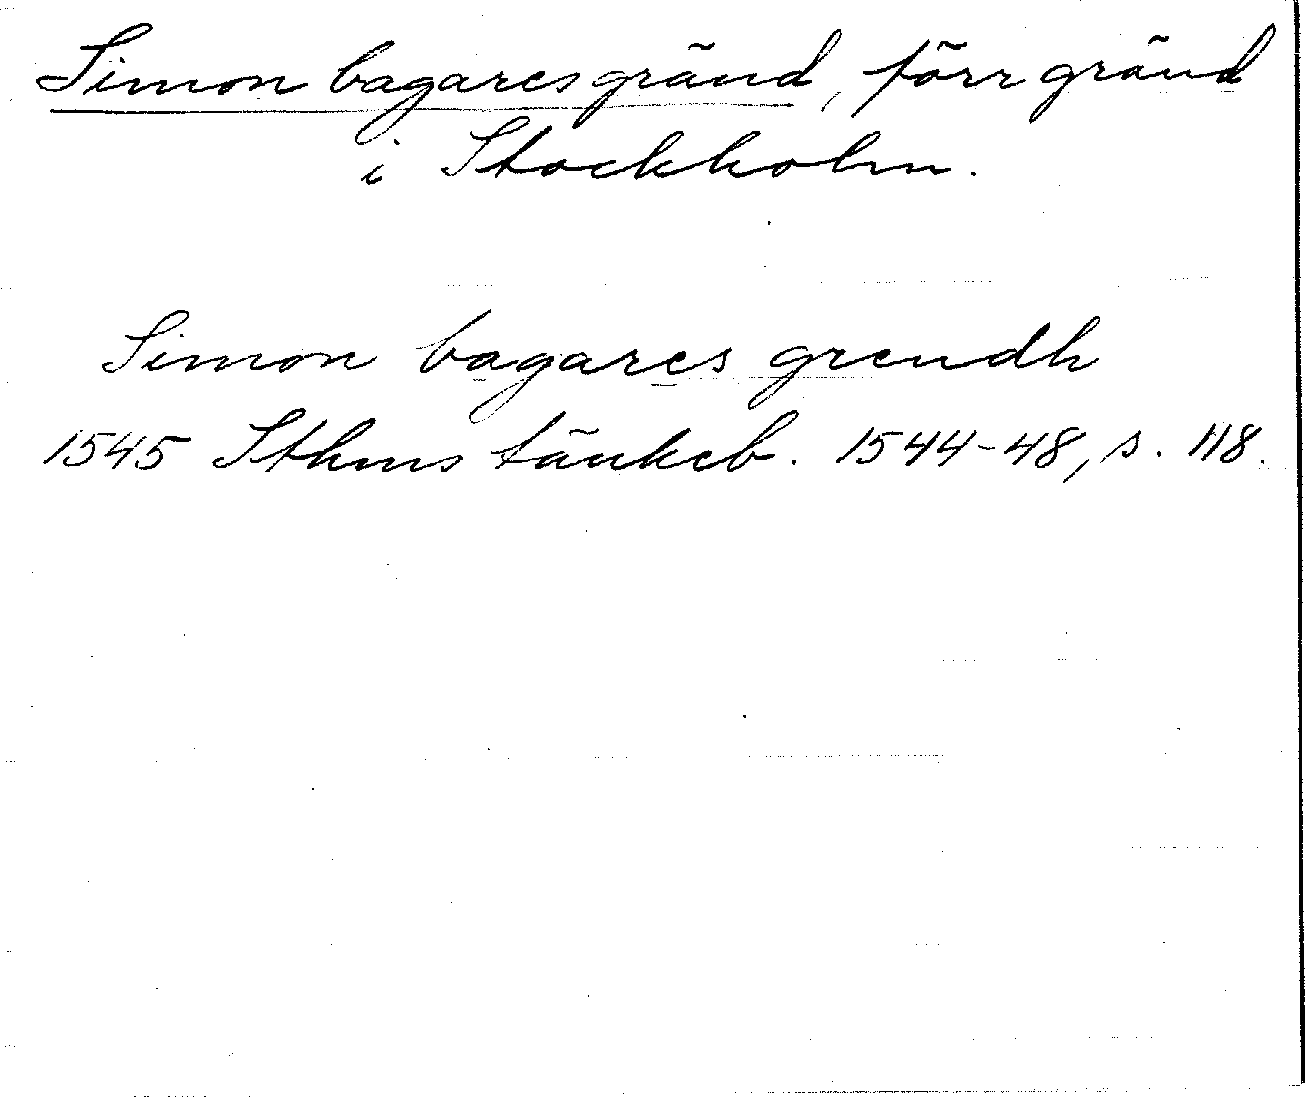 Simon bagares gränd, förr gränd
i Stockholm.
Simon bagares grendh
1545 Sthms tänkeb. 1544-48, s. 118.